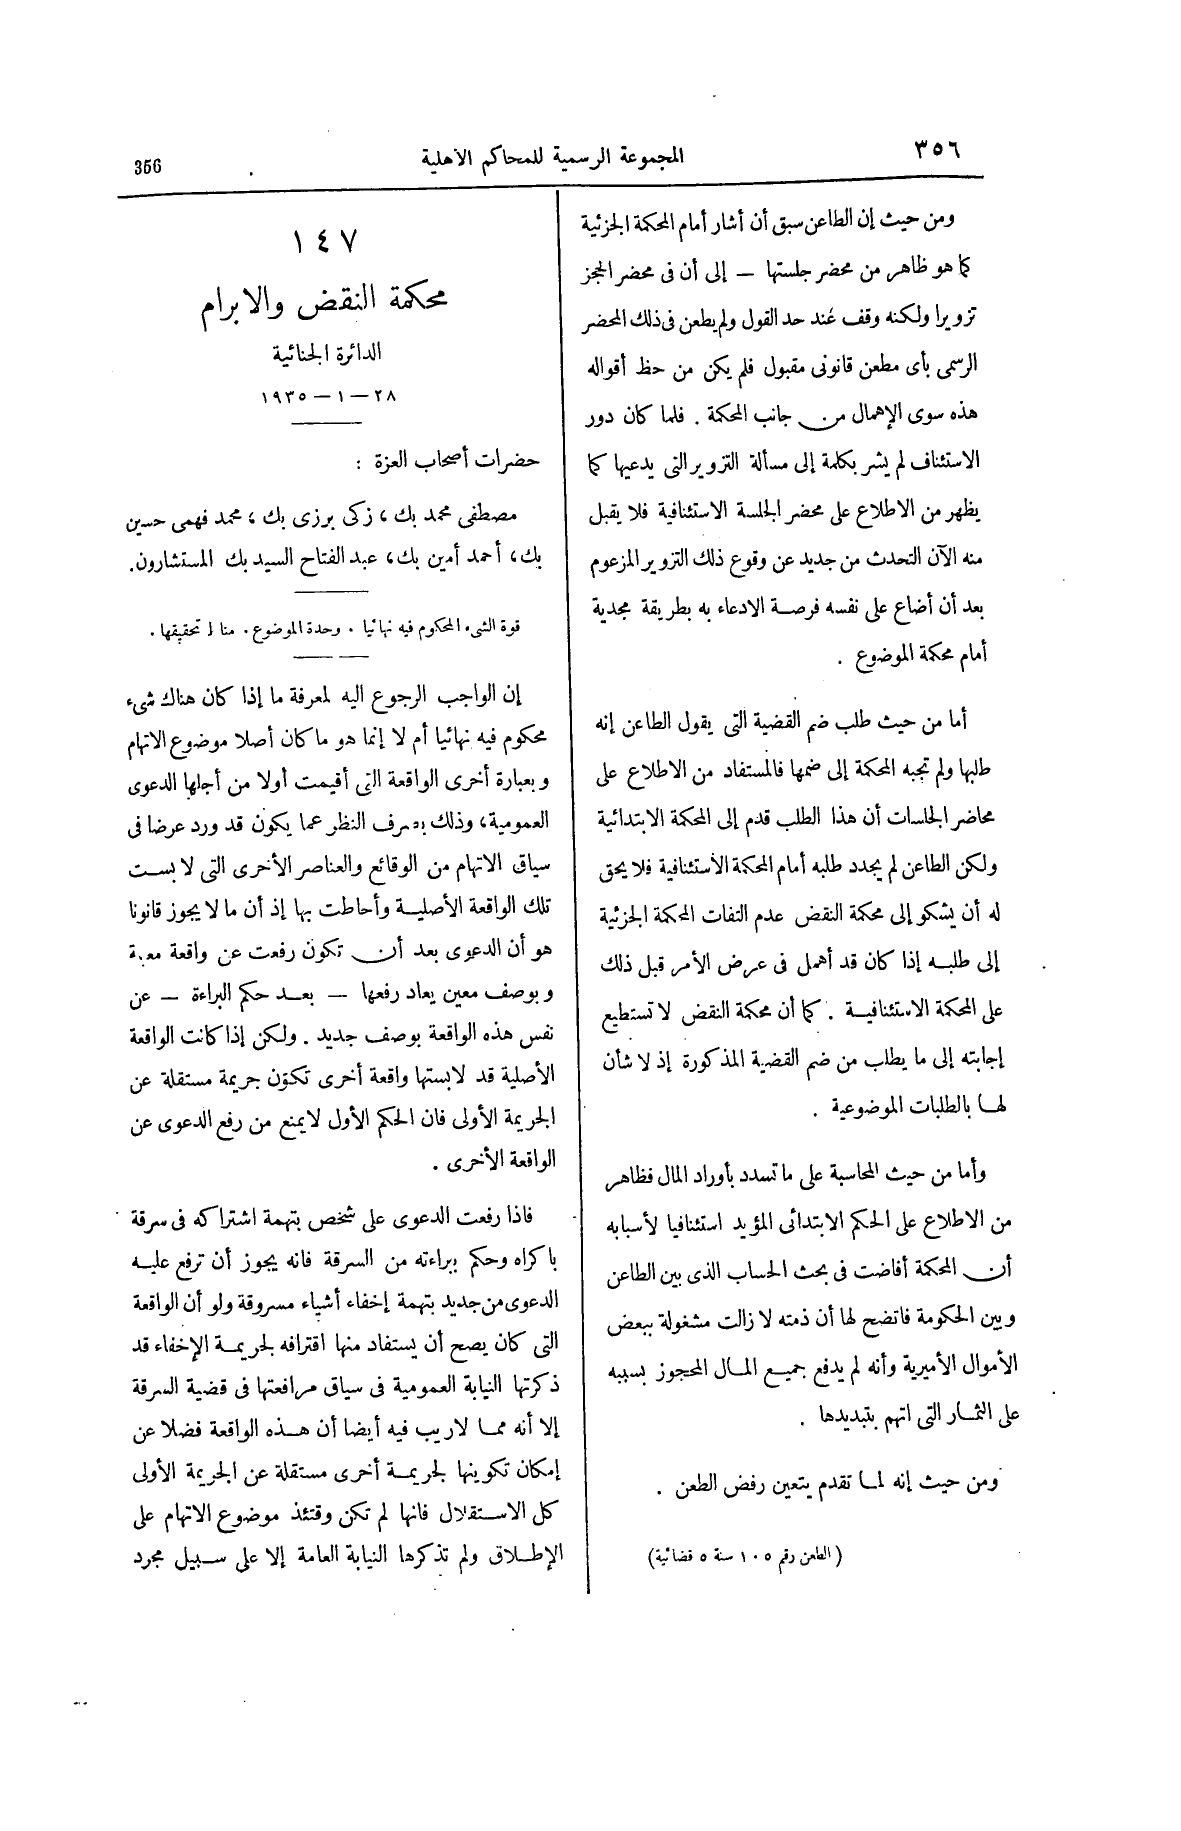 ٣٥٦
المجموعة الرسمية للمحاكم الأهلية
356
ومن حيث إن الطاعن سبق أن أشار أمام المحكمة الجزئية
كما هو ظاهر من محضر جلستها — إلى أن فى محضر الحجز
تزويرا ولكنه وقف عند حد القول ولم يطعن فى ذلك المحضر
الرسمى بأى مطعن قانونى مقبول فلم يكن من حظ أقواله
هذه سوى الإهمال من جانب المحكمة . فلما كان دور
الاستئناف لم يشر بكلمة إلى مسألة التزوير التى يدعيها كما
يظهر من الاطلاع على محضر الجلسة الاستئنافية فلا يقبل
منه الآن التحدث من جديد عن وقوع ذلك التزوير المزعوم
بعد أن أضاع على نفسه فرصة الادعاء به بطريقة مجدية
أمام محكمة الموضوع .
أما من حيث طلب ضم القضية التى يقول الطاعن إنه
طلبها ولم تجبه المحكمة إلى ضمها فالمستفاد من الاطلاع على
محاضر الجلسات أن هذا الطلب قدم إلى المحكمة الابتدائية
ولكن الطاعن لم يجدد طلبه أمام المحكمة الأستئنافية فلا يحق
له أن يشكو إلى محكمة النقض عدم التفات المحكمة الجزئية
إلى طلبه إذا كان قد أهمل فى عرض الأمر قبل ذلك
على المحكمة الاستئنافية . كما أن محكمة النقض لا تستطيع
إجابته إلى ما يطلب من ضم القضية المذكورة إذ لا شأن
لها بالطلبات الموضوعية .
وأما من حيث المحاسبة على ما تسدد بأوراد المال فظاهر
من الاطلاع على الحكم الابتدائى المؤيد استئنافيا لأسبابه
أن المحكمة أفاضت فى بحث الحساب الذى بين الطاعن
وبين الحكومة فاتضح لها أن ذمته لا زالت مشغولة ببعض
الأموال الأميرية وأنه لم يدفع جميع المال المحجوز بسببه
على الثمار التى اتهم بتبديدها .
ومن حيث إنه لما تقدم يتعين رفض الطعن .
( الطعن رقم ١٠٥ سنة ٥ قضائية )
١٤٧
محكمة النقض والابرام
الدائرة الجنائية
٢٨ — ١ — ١٩٣٥
حضرات أصحاب العزة :
مصطفى محمد بك ، زكى برزى بك ، محمد فهمى حسين
بك ، أحمد أمين بك ، عبد الفتاح السيد بك المستشارون.
قوة الشىء المحكوم فيه نهائيا . وحدة الموضوع . مناط تحقيقها .
إن الواجب الرجوع اليه لمعرفة ما إذا كان هناك شىء
محكوم فيه نهائيا أم لا إنما هو ما كان أصلا موضوع الاتهام
وبعبارة أخرى الواقعة التى أقيمت أولا من أجلها الدعوى
العمومية ، وذلك بصرف النظر عما يكون قد ورد عرضا فى
سياق الاتهام من الوقائع والعناصر الأخرى التى لابست
تلك الواقعة الأصلية وأحاطت بها إذ أن ما لا يجوز قانونا
هو أن الدعوى بعد أن تكون رفعت عن واقعة معينة
وبوصف معين يعاد رفعها — بعد حكم البراءة — عن
نفس هذه الواقعة بوصف جديد . ولكن إذا كانت الواقعة
الأصلية قد لابستها واقعة أخرى تكوّن جريمة مستقلة عن
الجريمة الأولى فان الحكم الأول لا يمنع من رفع الدعوى عن
الواقعة الأخرى .
فاذا رفعت الدعوى على شخص بتهمة اشتراكه فى سرقة
باكراه وحكم ببراءته من السرقة فانه يجوز أن ترفع عليه
الدعوى من جديد بتهمة إخفاء أشياء مسروقة ولو أن الواقعة
التى كان يصح أن يستفاد منها اقترافه لجريمة الإخفاء قد
ذكرتها النيابة العمومية فى سياق مرافعتها فى قضية السرقة
إلا أنه مما لا ريب فيه أيضا أن هذه الواقعة فضلا عن
إمكان تكوينها لجريمة أخرى مستقلة عن الجريمة الأولى
كل الاستقلال فانها لم تكن وقتئذ موضوع الاتهام على
الإطلاق ولم تذكرها النيابة العامة إلا على سبيل مجرد